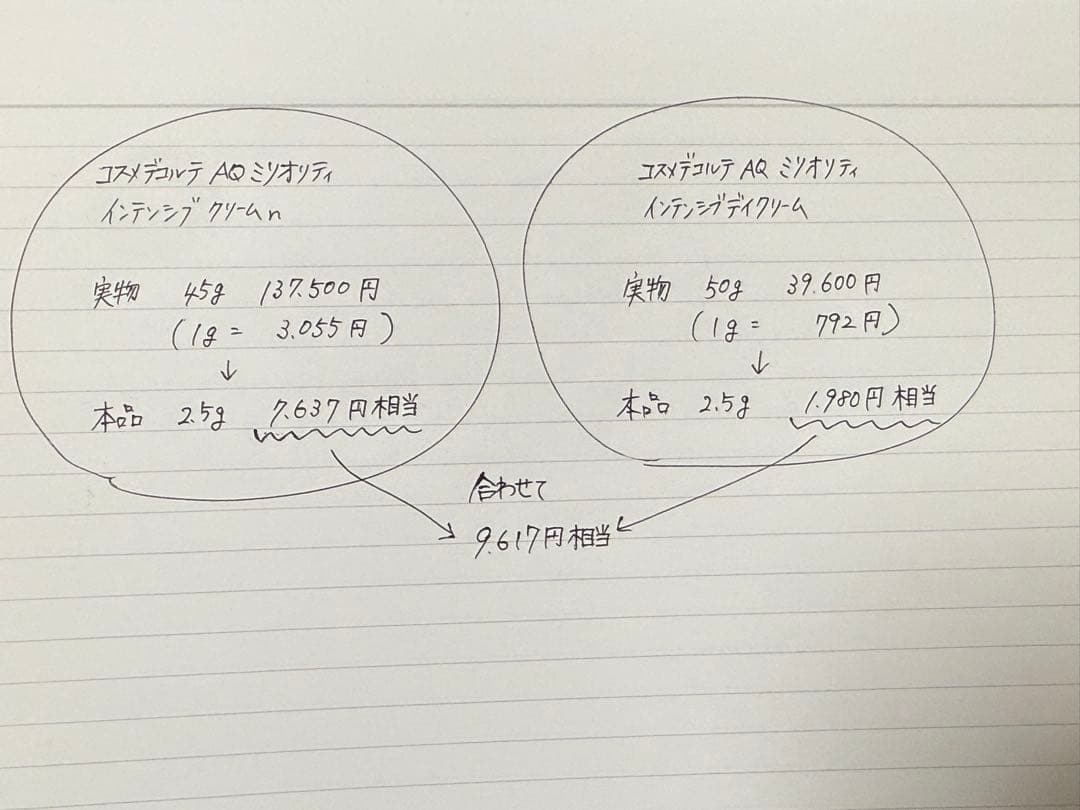 コスメデコルテ AQ ミリオリティ
インテンシブ クリーム n
実物 45g 137.500円
(1g = 3.055円)
↓
本品 2.5g 7.637円相当
コスメデコルテ AQ ミリオリティ
インテンシブデイクリーム
実物 50g 39.600円
(1g = 792円)
↓
本品 2.5g 1.980円相当
合わせて
9.617円相当